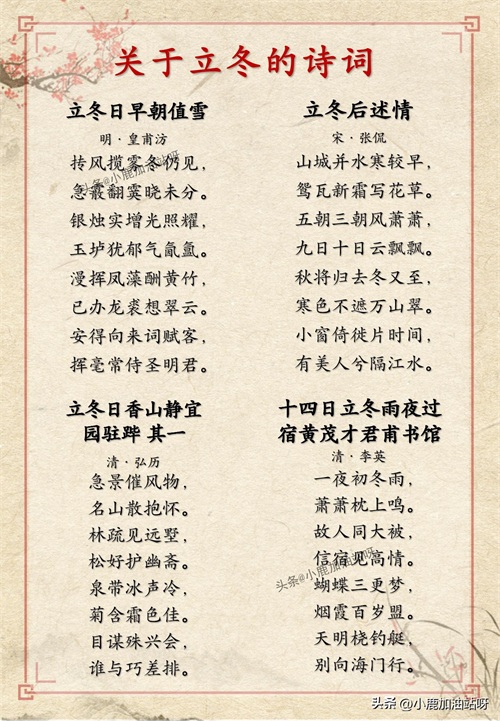 关于立冬的诗词
立冬日早朝值雪
明·皇甫汸
抟风揽雾冬仍见，
急霰翻霙晓未分。
银烛实增光照耀，
玉垆犹郁气氤氲。
漫挥凤藻酬黄竹，
已办龙裘想翠云。
安得向来词赋客，
挥毫常侍圣明君。
立冬后述情
宋·张侃
山城并水寒较早，
鸳瓦新霜写花草。
五朝三朝风萧萧，
九日十日云飘飘。
秋将归去冬又至，
寒色不遮万山翠。
小窗倚徙片时间，
有美人兮隔江水。
立冬日香山静宜
园驻跸 其一
清·弘历
急景催风物，
名山散抱怀。
林疏见远墅，
松好护幽斋。
泉带冰声冷，
菊含霜色佳。
目谋殊兴会，
谁与巧差排。
十四日立冬雨夜过
宿黄茂才君甫书馆
清·李英
一夜初冬雨，
萧萧枕上鸣。
故人同大被，
信宿见高情。
蝴蝶三更梦，
烟霞百岁盟。
天明桡钓艇，
别向海门行。
头条@小鹿加油站呀
头条@小鹿加油站呀
头条 @小鹿加油站呀